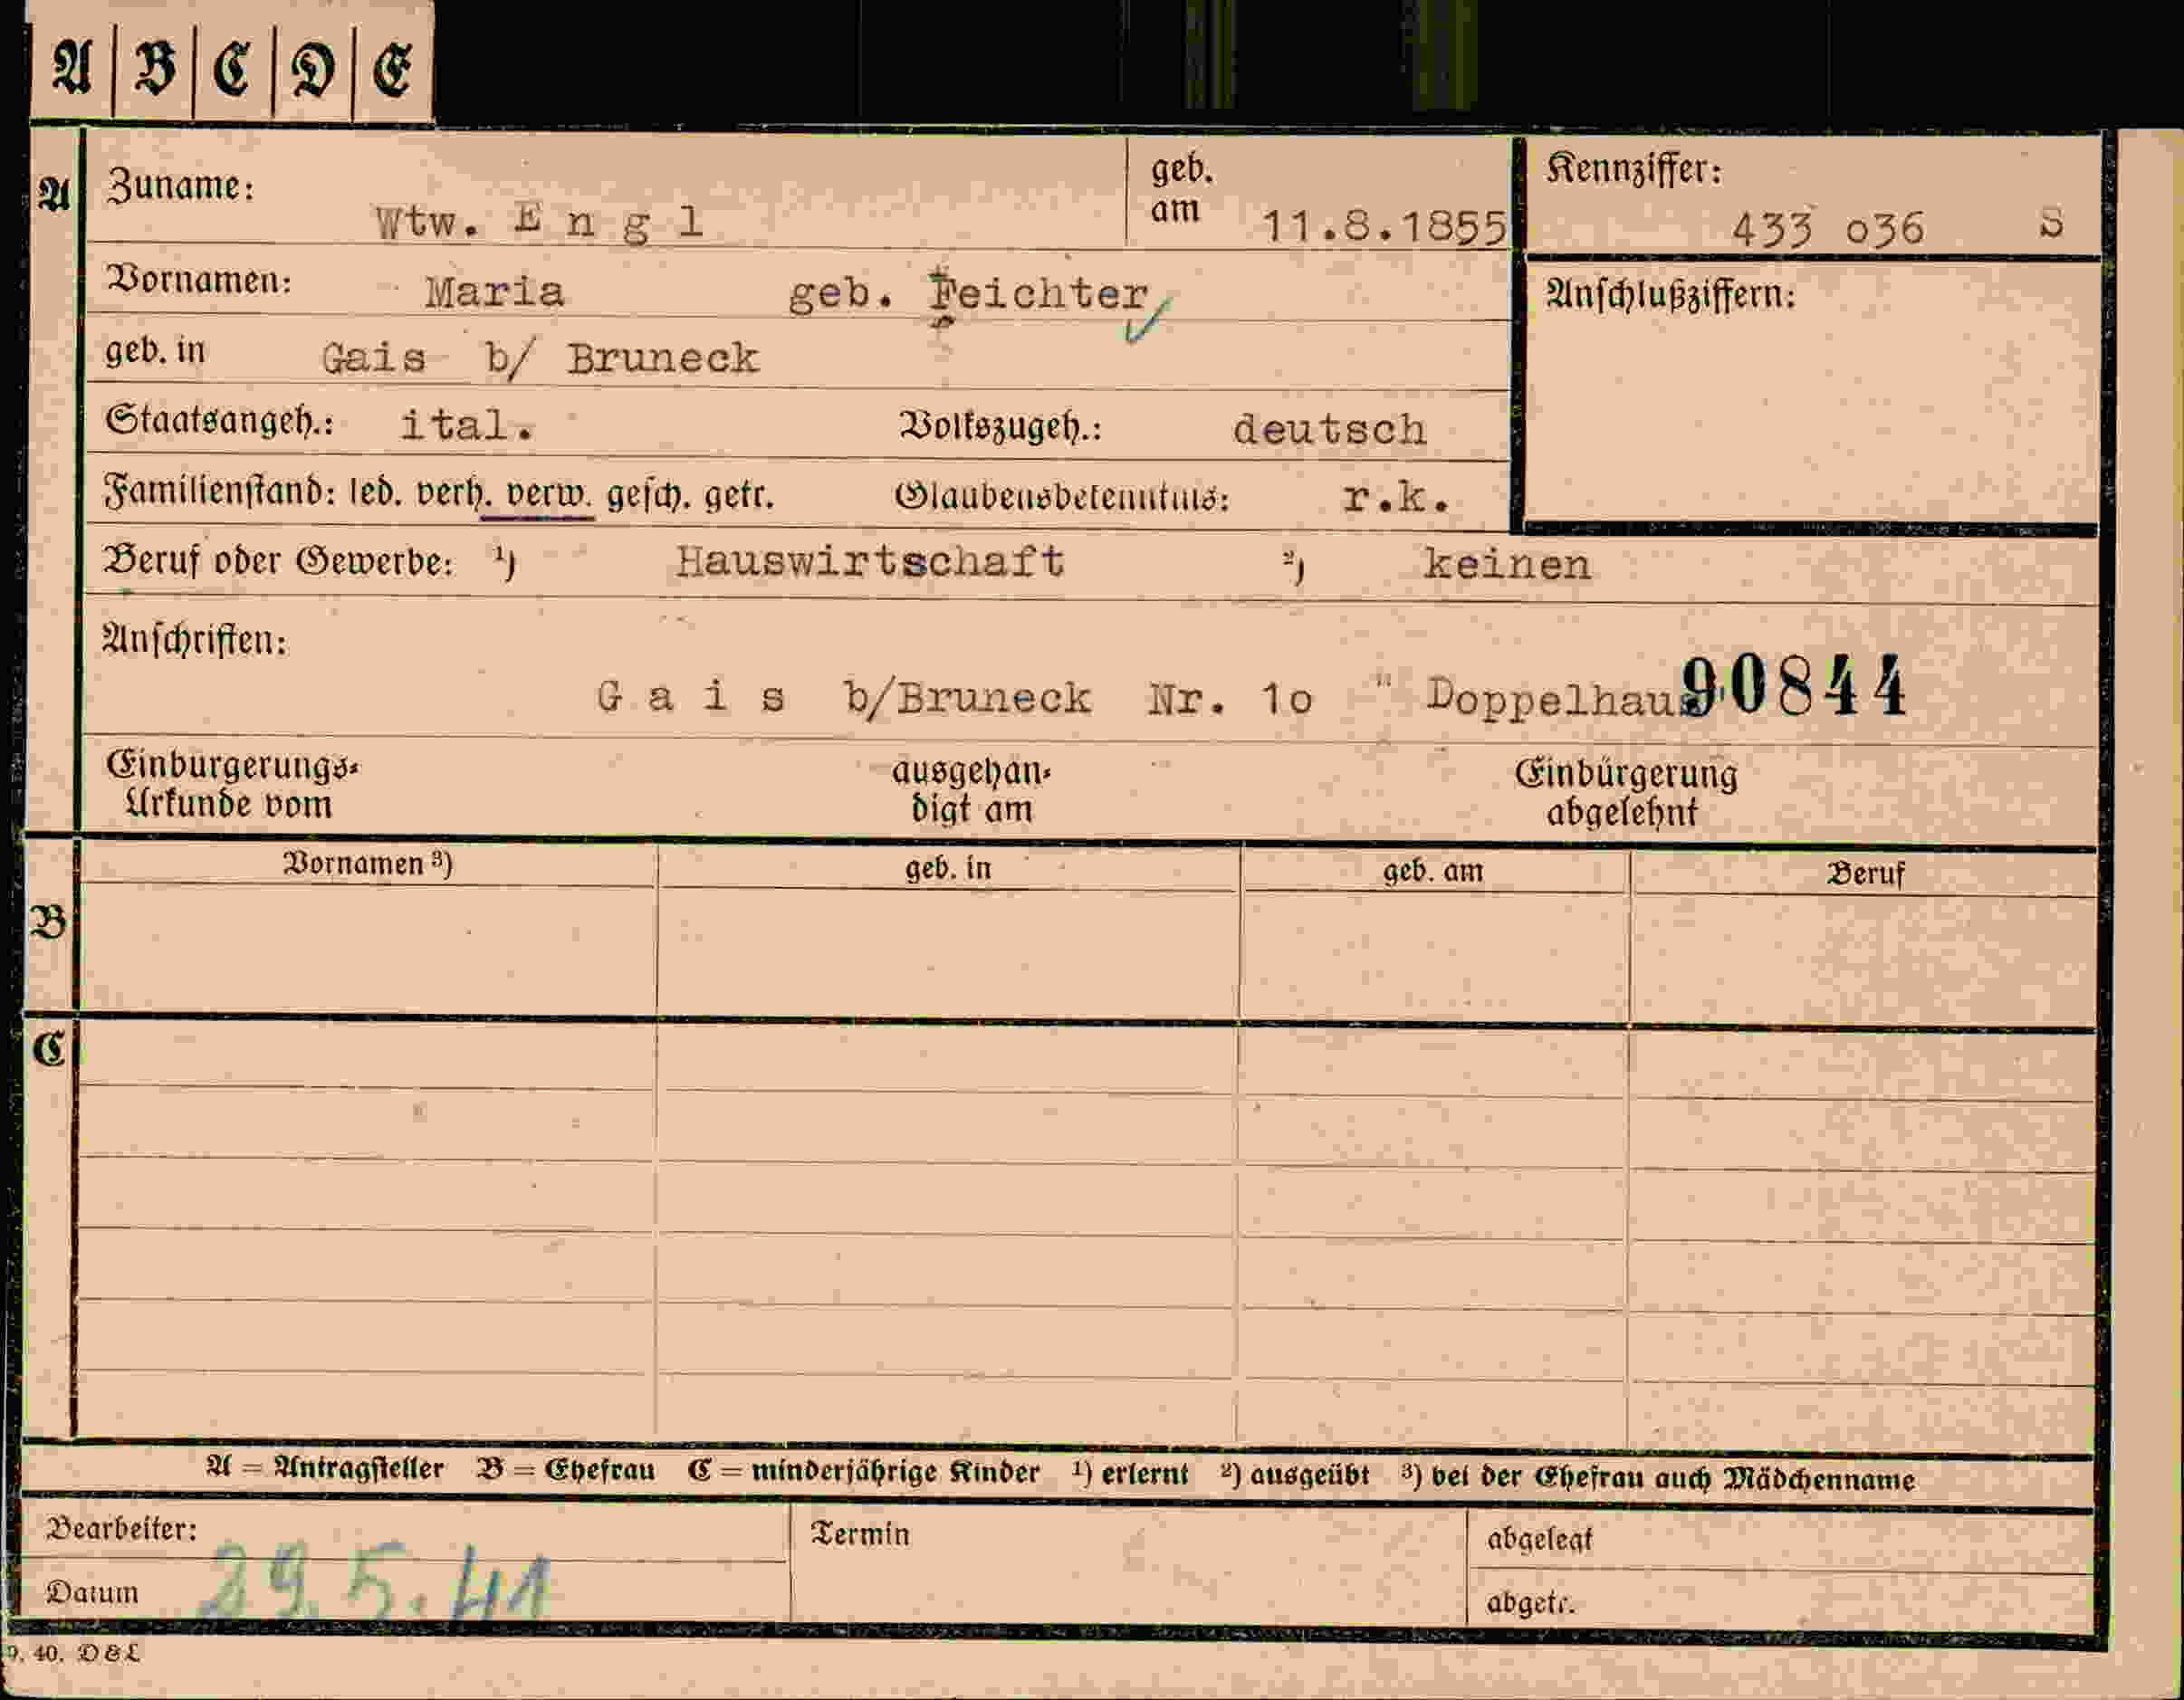 A B C D E
A
Zuname: Wtw. E n g l
geb. am 11.8.1855
Kennziffer: 433 o36 S
Vornamen: Maria geb. Feichter
Anschlußziffern:
geb. in Gais b/ Bruneck
Staatsangeh.: ital. Volkszugeh.: deutsch
Familienstand: led. verh. verw. gesch. getr. Glaubensbekenntnis: r.k.
Beruf oder Gewerbe: ¹) Hauswirtschaft ²) keinen
Anschriften:
G a i s b/Bruneck Nr. 1o " Doppelhaus 90844
Einbürgerungs-Urkunde vom
ausgehan-digt am
Einbürgerung abgelehnt
B
Vornamen ³) geb. in geb. am Beruf
C
A = Antragsteller B = Ehefrau C = minderjährige Kinder ¹) erlernt ²) ausgeübt ³) bei der Ehefrau auch Mädchenname
Bearbeiter: Termin abgelegt
Datum 29.5.41 abgetr.
9. 40. D & L